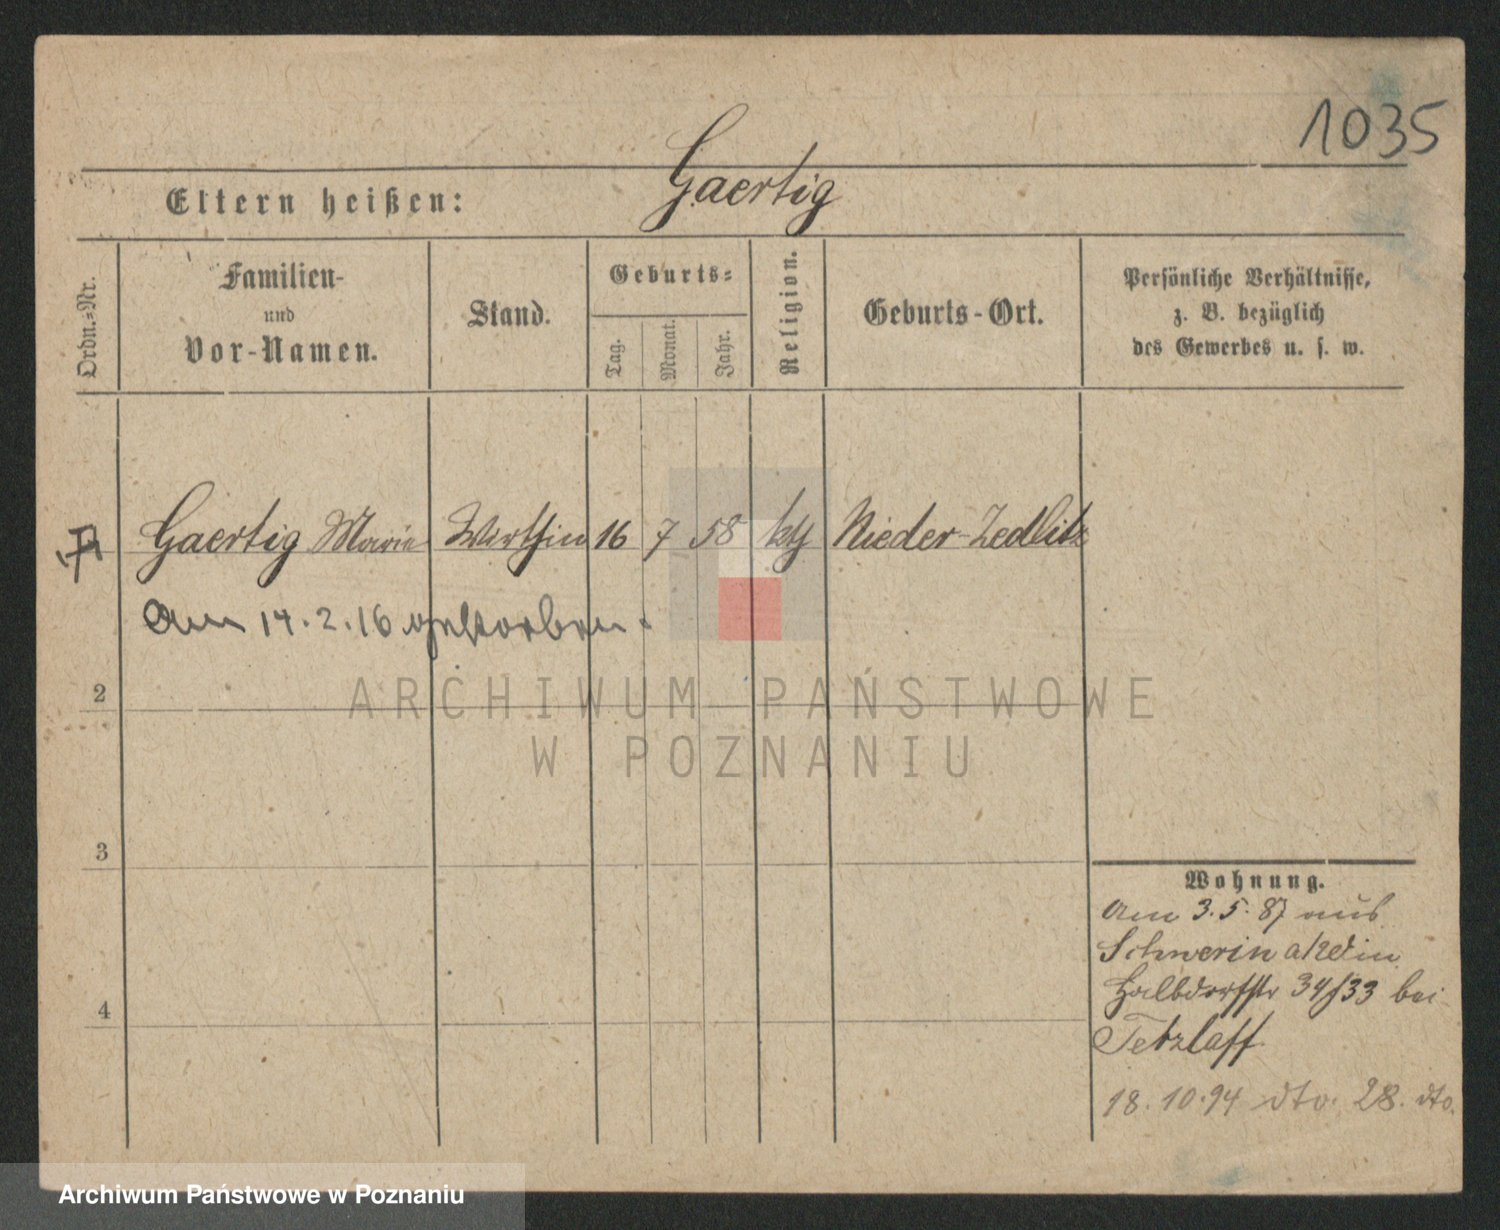 1035
Gaertig
Eltern heißen:
Ordn.-Nr.
Familien-
und
Vor-Namen.
Stand.
Geburts-
Tag.
Monat.
Jahr.
Religion.
Geburts-Ort.
Persönliche Verhältnisse,
z. B. bezüglich
des Gewerbes u. s. w.
Gaertig Marie Wirthin 16 7 58 kth Nieder-Zedlitz
Am 14.2.16 gestorben.
2
ARCHIWUM PAŃSTWOWE
W POZNANIU
3
Wohnung.
Am 3.5.87 aus
Schwerin a/W in
Halbdorfstr 34/33 bei
Tetzlaff
4
18.10.94 dto. 28. dto.
Archiwum Państwowe w Poznaniu